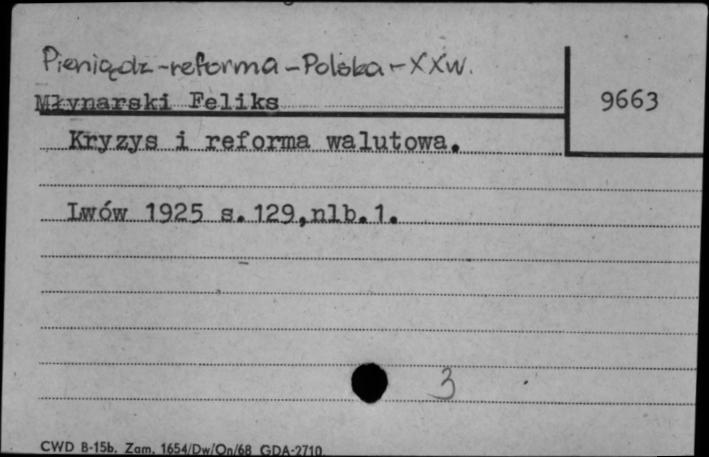 Pieniądz-reforma-Polska-XXw.
Młynarski Feliks
9663
Kryzys i reforma walutowa.
Lwów 1925 s.129,nlb.1.
3
CWD B-15b. Zam. 1654/Dw/On/68 GDA-2710